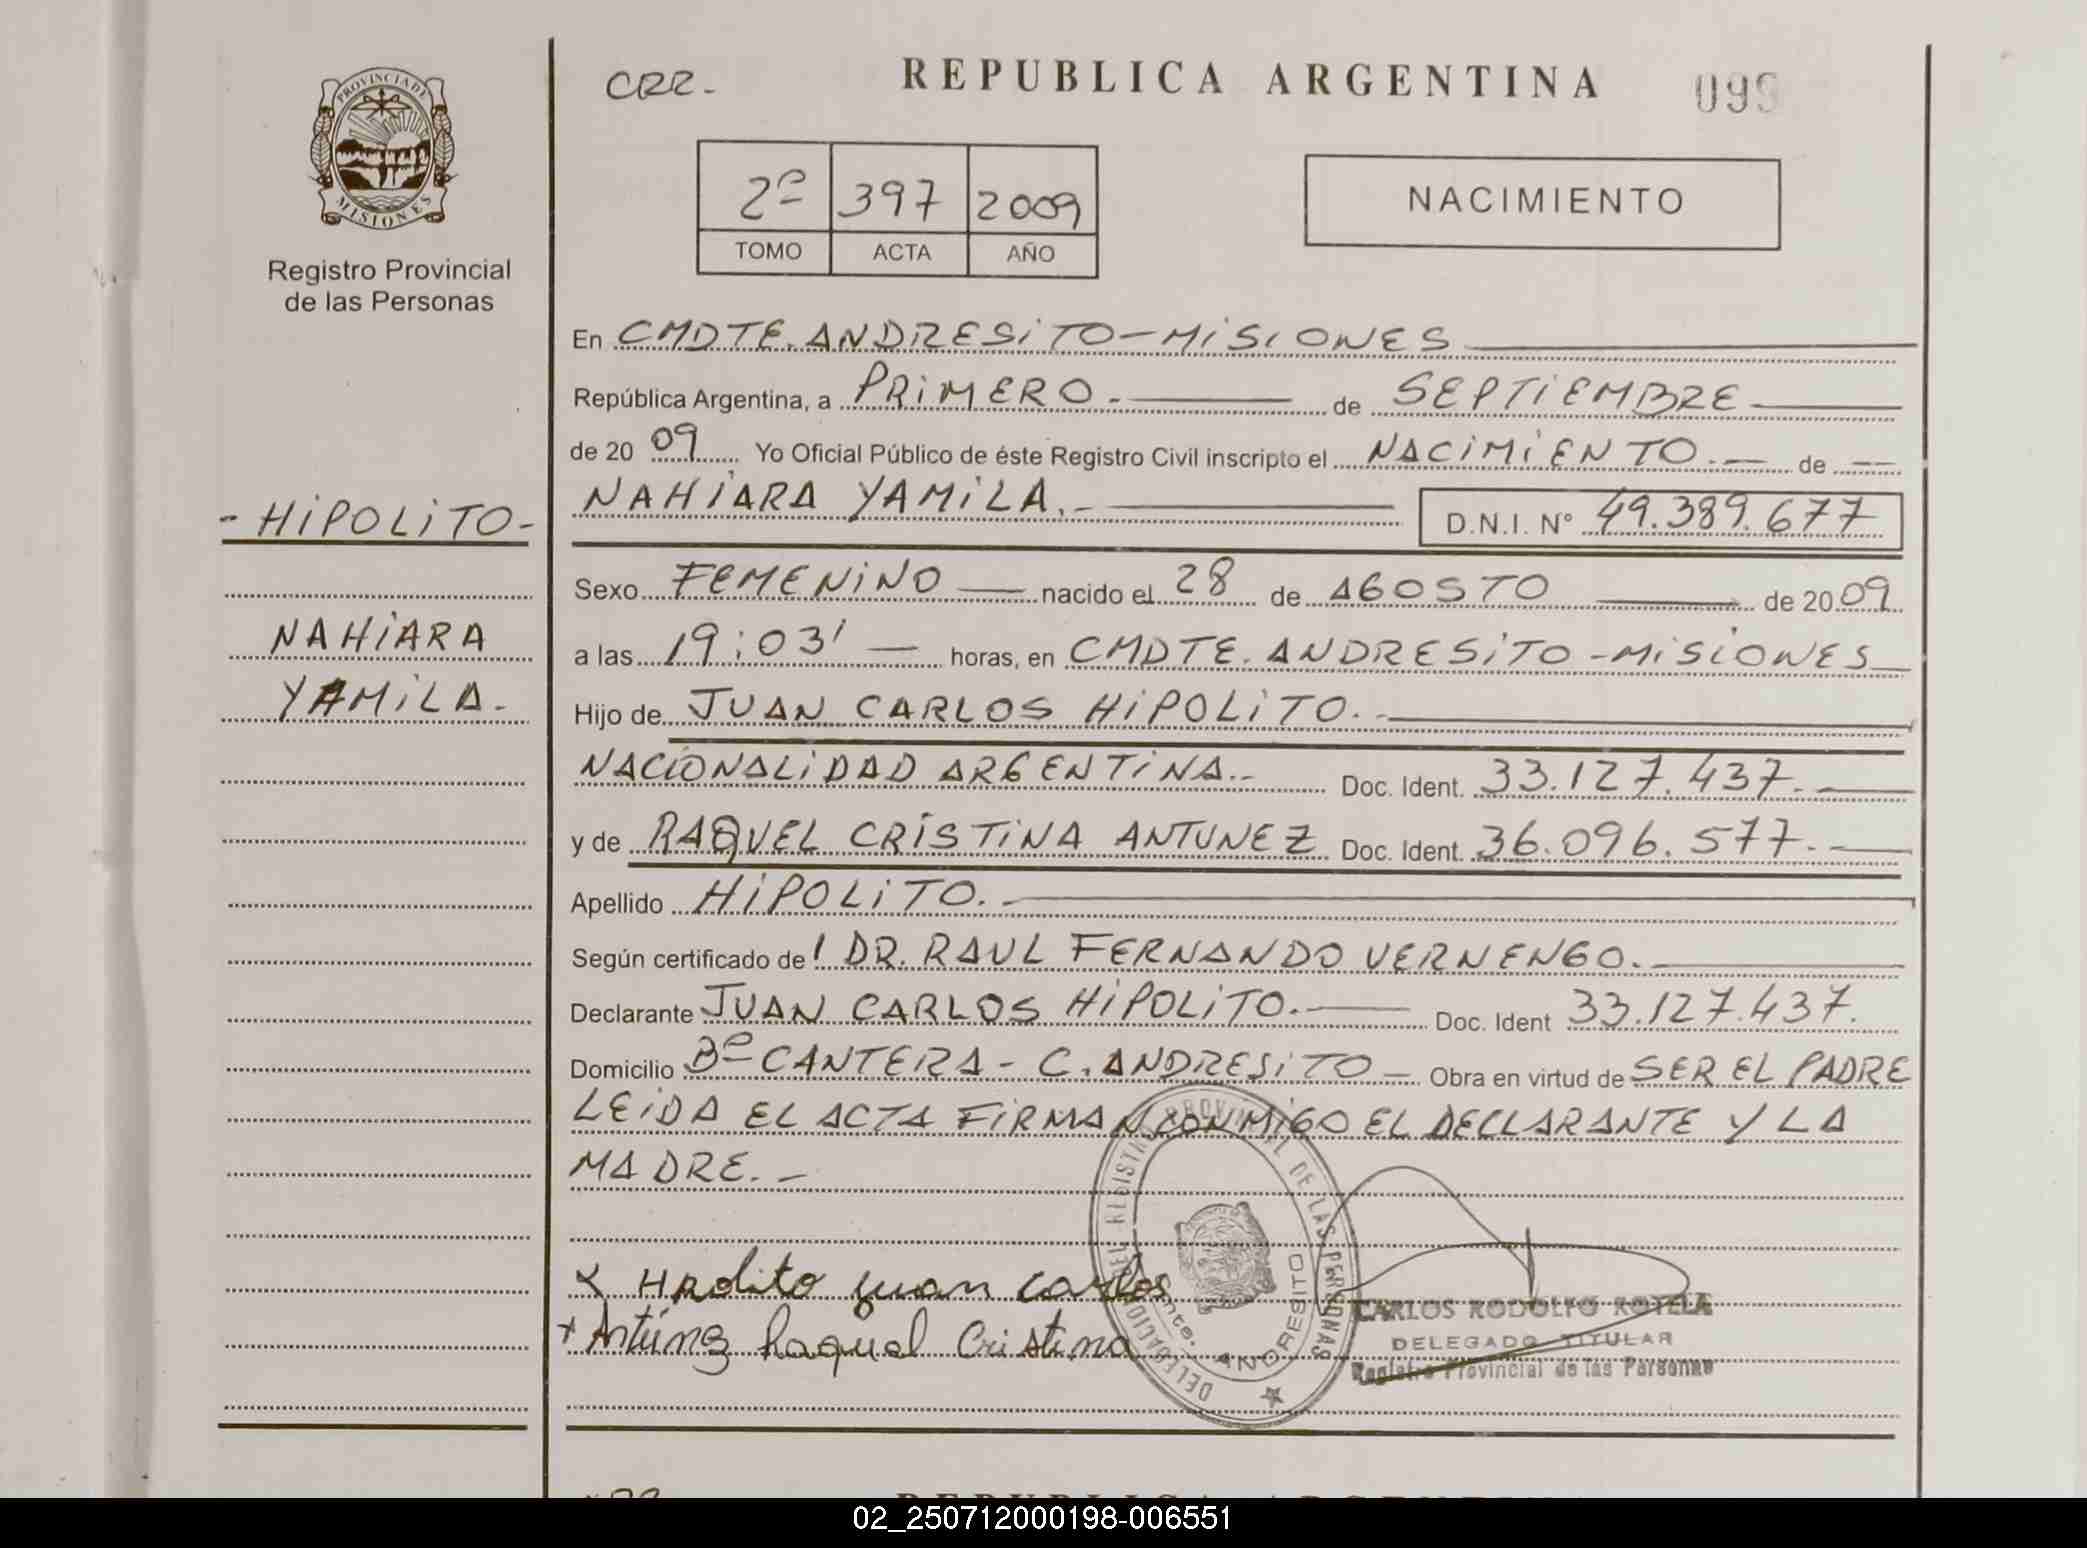 PROVINCIA DE
MISIONES
Registro Provincial
de las Personas
- HiPOLiTO -
NAHiARA
YAMiLA.-
CRR.-
REPUBLICA ARGENTINA
099
2º 397 2009
TOMO ACTA AÑO
NACIMIENTO
En CMDTE. ANDRESiTO-MiSiONES
República Argentina, a PRiMERO.- de SEPTiEMBRE
de 20 09 Yo Oficial Público de éste Registro Civil inscripto el NACiMiENTO.- de
NAHiARA YAMiLA.-
D.N.I. Nº 49.389.677
Sexo FEMENiNO nacido el 28 de AGOSTO de 20 09
a las 19:03' horas, en CMDTE. ANDRESiTO-MiSiONES
Hijo de JUAN CARLOS HiPOLiTO.-
NACiONALiDAD ARGENTiNA.- Doc. Ident. 33.127.437.-
y de RAQUEL CRiSTiNA ANTUNEZ Doc. Ident. 36.096.577.-
Apellido HiPOLiTO.-
Según certificado de l DR. RAUL FERNANDO VERNENGO.-
Declarante JUAN CARLOS HiPOLiTO.- Doc. Ident 33.127.437.
Domicilio Bº CANTERA - C. ANDRESiTO - Obra en virtud de SER EL PADRE
LEiDA EL ACTA FiRMAN CONMiGO EL DECLARANTE Y LA
MADRE.-
DELEGACION DEL REGISTRO PROVINCIAL DE LAS PERSONAS
Cmte. ANDRESITO
x Hpolito juan carlos
+ Antúnez Raquel Cristina
CARLOS RODOLFO ROTELA
DELEGADO TITULAR
Registro Provincial de las Personas
REPUBLICA ARGENTINA
02_250712000198-006551